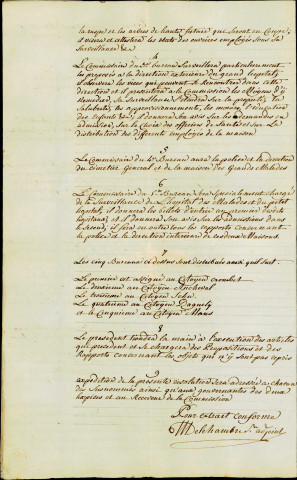 la coupe et les arbres de haute futaie qui seront en Coupe;
il visera et attestera les états des ouvriers employés sous sa
surveillance &a
4
Le Commissaire du 3e Bureau Surveillera particulièrement
les préposés à la direction intérieure du grand hôpital;
il observera les vices qui peuvent se Rencontrer dans cette
direction et il présentera à la Commission les Moyens d'y
Remédier, sa Surveillance s'étendra sur la propreté, la
salubrité, les approvisionnements, les mœurs, l'éducation
des enfants &a; il donnera son avis sur les demandes en
admission, sur le choix des officiers de Santé et sur La
distribution des différents employés de la maison
5
Le Commissaire du 4e Bureau aura la police et la direction
du cimetière Général et de la maison des Grands Malades
6
Le Commissaire du 5e Bureau Sera Spécialement chargé
de la Surveillance de l'hôpital des Malades et du petit
hôpital, il donnera les billets d'entrée au premier des deux
hôpitaux; et il donnera son avis sur les admissions dans
le second; il fera en outre tous les rapports concernant
la police et la direction intérieure de ces deux Maisons
7
Les cinq Bureaux ci dessus sont distribués ainsi qu'il suit:
Le premier est assigné au Citoyen
Le deuxième au Citoyen
Le troisième au Citoyen
Le quatrième au Citoyen
et le Cinquième au Citoyen
8
Le président tiendra la main à l'exécution des articles
qui précèdent et se chargera des Propositions et des
Rapports concernant les objets qui n'y sont pas repris
9
expédition de la présente résolution sera adressée à chacun
des Susnommés ainsi qu'aux gouvernantes des deux
hospices et au Receveur de la Commission
Pour extrait conforme
Delchambre Sre adjoint